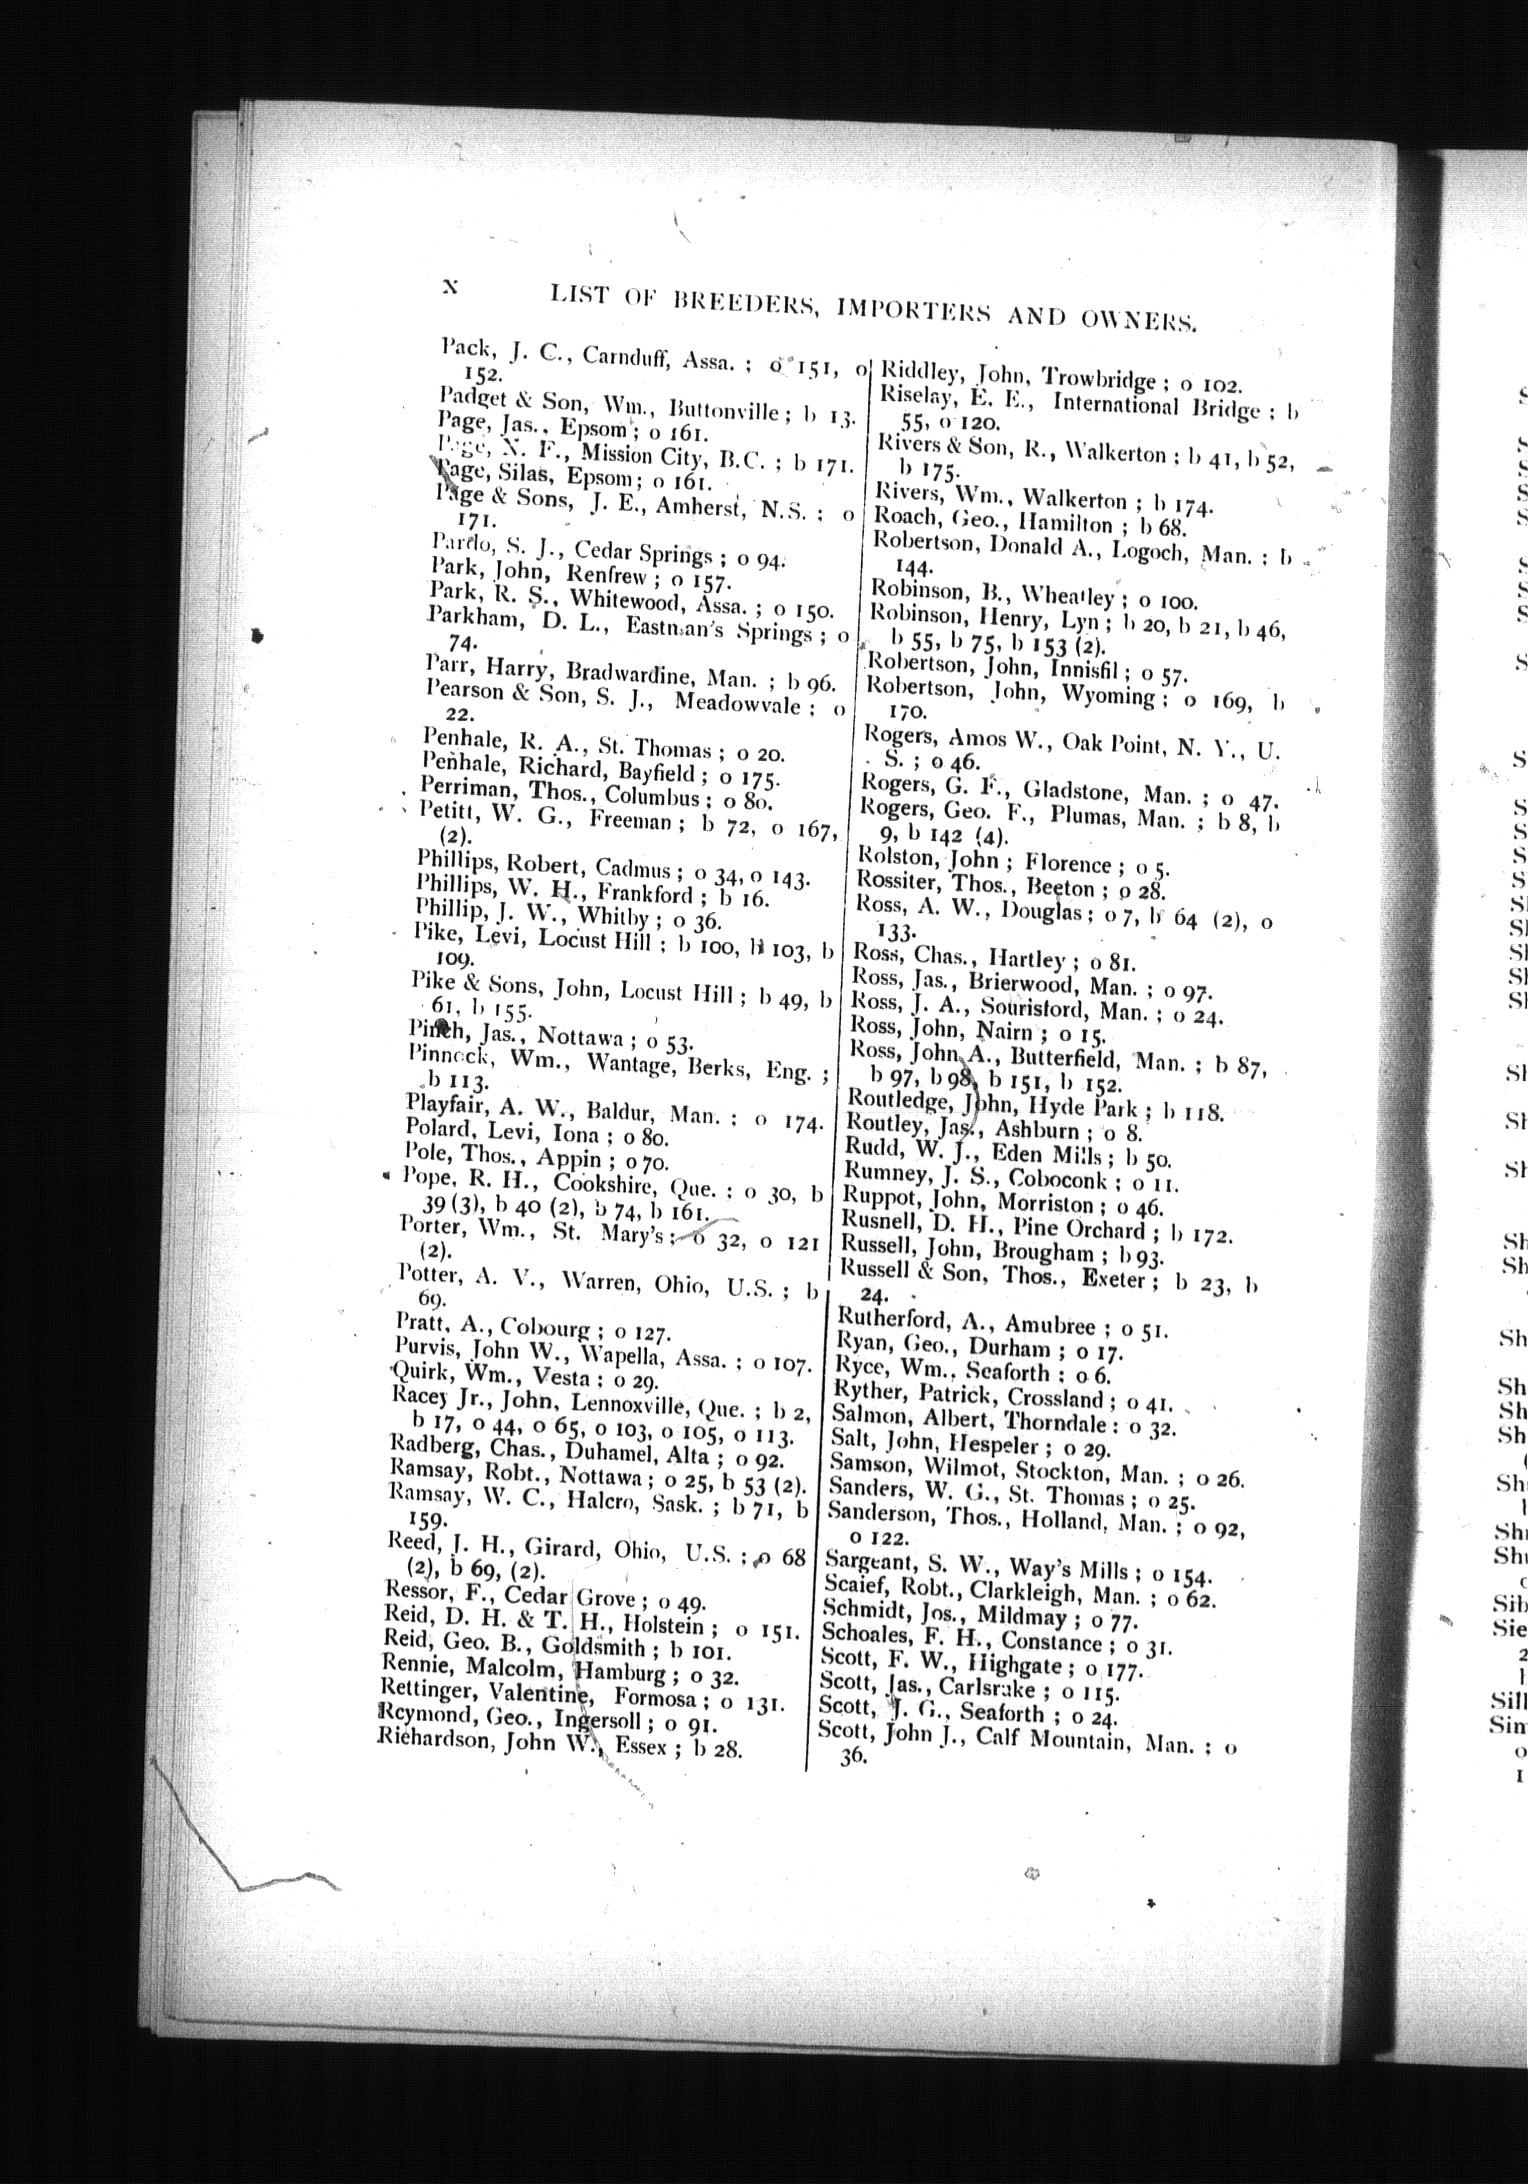 X LIST OF BREEDERS, IMPORTERS AND OWNERS.
Pack, J. C., Carnduff, Assa. ; o 151, o
152.
Padget & Son, Wm., Buttonville ; b 13.
Page, Jas., Epsom ; o 161.
Page, N. F., Mission City, B.C. ; b 171.
Page, Silas, Epsom ; o 161.
Page & Sons, J. E., Amherst, N.S. ; o
171.
Pardo, S. J., Cedar Springs ; o 94.
Park, John, Renfrew ; o 157.
Park, R. S., Whitewood, Assa. ; o 150.
Parkham, D. L., Eastman's Springs ; o
74.
Parr, Harry, Bradwardine, Man. ; b 96.
Pearson & Son, S. J., Meadowvale ; o
22.
Penhale, R. A., St. Thomas ; o 20.
Penhale, Richard, Bayfield ; o 175.
Perriman, Thos., Columbus ; o 80.
Petitt, W. G., Freeman ; b 72, o 167,
(2).
Phillips, Robert, Cadmus ; o 34, o 143.
Phillips, W. H., Frankford ; b 16.
Phillip, J. W., Whitby ; o 36.
Pike, Levi, Locust Hill ; b 100, b 103, b
109.
Pike & Sons, John, Locust Hill ; b 49, b
61, b 155.
Pinch, Jas., Nottawa ; o 53.
Pinnock, Wm., Wantage, Berks, Eng. ;
b 113.
Playfair, A. W., Baldur, Man. ; o 174.
Polard, Levi, Iona ; o 80.
Pole, Thos., Appin ; o 70.
Pope, R. H., Cookshire, Que. ; o 30, b
39 (3), b 40 (2), b 74, b 161.
Porter, Wm., St. Mary's ; o 32, o 121
(2).
Potter, A. V., Warren, Ohio, U.S. ; b
69.
Pratt, A., Cobourg ; o 127.
Purvis, John W., Wapella, Assa. ; o 107.
Quirk, Wm., Vesta ; o 29.
Racey Jr., John, Lennoxville, Que. ; b 2,
b 17, o 44, o 65, o 103, o 105, o 113.
Radberg, Chas., Duhamel, Alta ; o 92.
Ramsay, Robt., Nottawa ; o 25, b 53 (2).
Ramsay, W. C., Halcro, Sask. ; b 71, b
159.
Reed, J. H., Girard, Ohio, U.S. ; o 68
(2), b 69, (2).
Ressor, F., Cedar Grove ; o 49.
Reid, D. H. & T. H., Holstein ; o 151.
Reid, Geo. B., Goldsmith ; b 101.
Rennie, Malcolm, Hamburg ; o 32.
Rettinger, Valentine, Formosa ; o 131.
Reymond, Geo., Ingersoll ; o 91.
Richardson, John W., Essex ; b 28.
Riddley, John, Trowbridge ; o 102.
Riselay, E. E., International Bridge ; b
55, o 120.
Rivers & Son, R., Walkerton ; b 41, b 52,
b 175.
Rivers, Wm., Walkerton ; b 174.
Roach, Geo., Hamilton ; b 68.
Robertson, Donald A., Logoch, Man. ; b
144.
Robinson, B., Wheatley ; o 100.
Robinson, Henry, Lyn ; b 20, b 21, b 46,
b 55, b 75, b 153 (2).
Robertson, John, Innisfil ; o 57.
Robertson, John, Wyoming ; o 169, b
170.
Rogers, Amos W., Oak Point, N. Y., U.
S. ; o 46.
Rogers, G. F., Gladstone, Man. ; o 47.
Rogers, Geo. F., Plumas, Man. ; b 8, b
9, b 142 (4).
Rolston, John ; Florence ; o 5.
Rossiter, Thos., Beeton ; o 28.
Ross, A. W., Douglas ; o 7, b 64 (2), o
133.
Ross, Chas., Hartley ; o 81.
Ross, Jas., Brierwood, Man. ; o 97.
Ross, J. A., Sourisford, Man. ; o 24.
Ross, John, Nairn ; o 15.
Ross, John A., Butterfield, Man. ; b 87,
b 97, b 98, b 151, b 152.
Routledge, John, Hyde Park ; b 118.
Routley, Jas., Ashburn ; o 8.
Rudd, W. J., Eden Mills ; b 50.
Rumney, J. S., Coboconk ; o 11.
Ruppot, John, Morriston ; o 46.
Rusnell, D. H., Pine Orchard ; b 172.
Russell, John, Brougham ; b 93.
Russell & Son, Thos., Exeter ; b 23, b
24.
Rutherford, A., Amubree ; o 51.
Ryan, Geo., Durham ; o 17.
Ryce, Wm., Seaforth : o 6.
Ryther, Patrick, Crossland ; o 41.
Salmon, Albert, Thorndale : o 32.
Salt, John, Hespeler ; o 29.
Samson, Wilmot, Stockton, Man. ; o 26.
Sanders, W. G., St. Thomas ; o 25.
Sanderson, Thos., Holland, Man. ; o 92,
o 122.
Sargeant, S. W., Way's Mills ; o 154.
Scaief, Robt., Clarkleigh, Man. ; o 62.
Schmidt, Jos., Mildmay ; o 77.
Schoales, F. H., Constance ; o 31.
Scott, F. W., Highgate ; o 177.
Scott, Jas., Carlsrake ; o 115.
Scott, J. G., Seaforth ; o 24.
Scott, John J., Calf Mountain, Man. ; o
36.